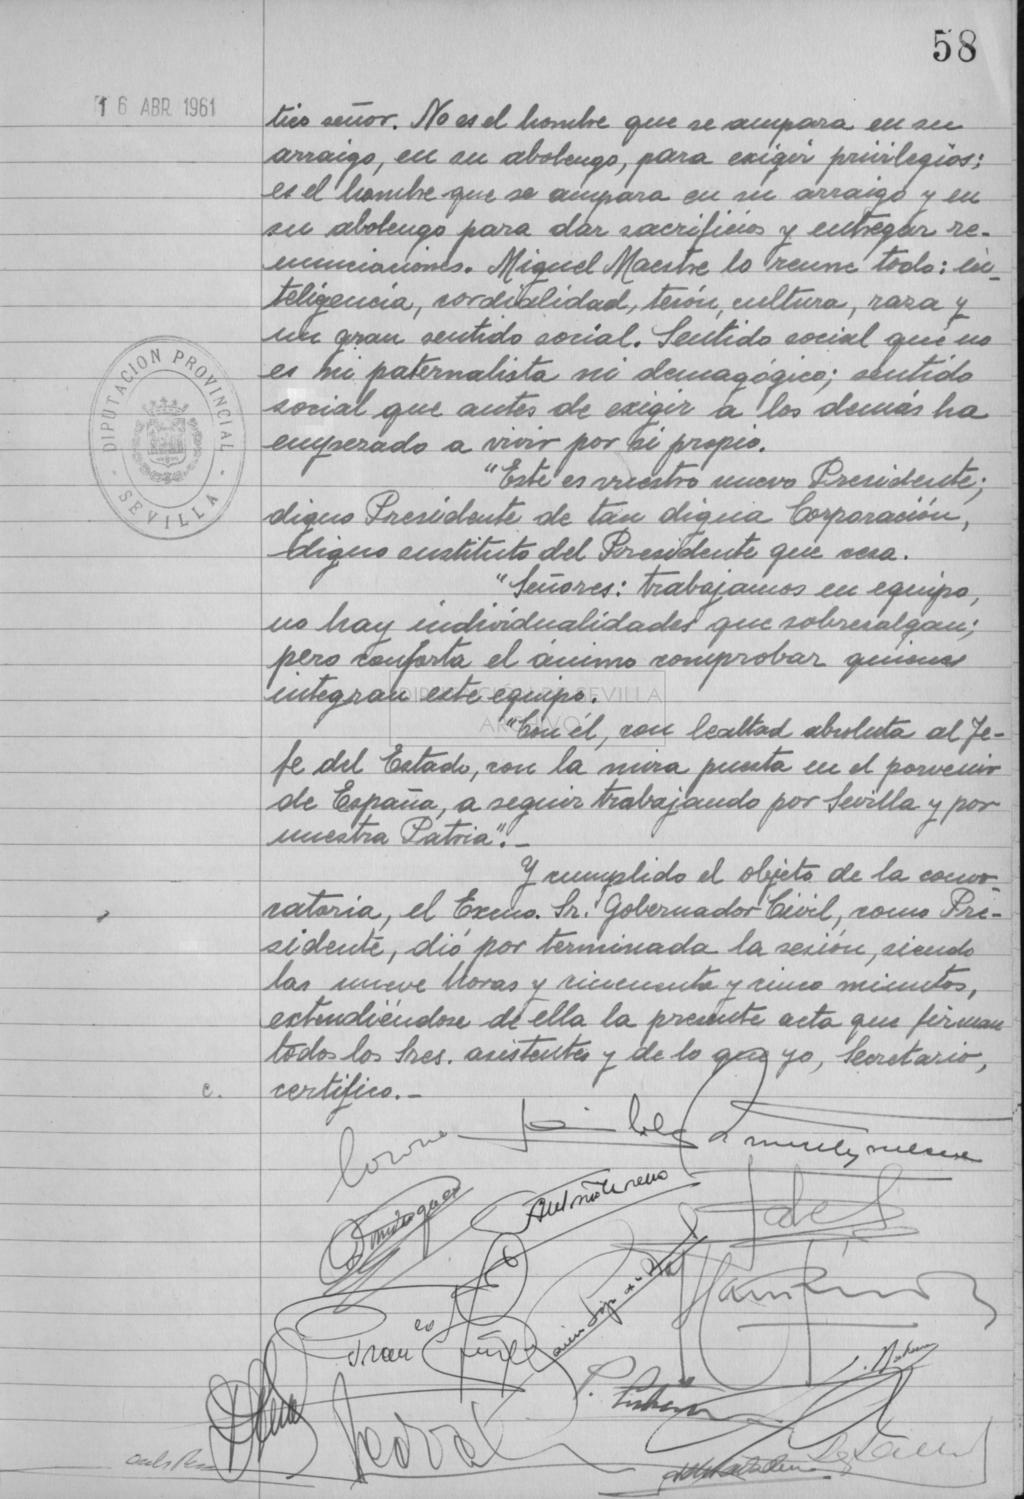 58
16 ABR 1961
tico señor. No es el hombre que se ampara en su
arraigo, en su abolengo, para exigir privilegios;
es el hombre que se ampara en su arraigo y en
su abolengo para dar sacrificios y entregar re-
enunciaciones. Miguel Maestre lo reune todo: in-
teligencia, cordialidad, tesón, cultura, raza y
un gran sentido social. Sentido social que no
es ni paternalista ni demagógico; sentido
social que antes de exigir a los demás ha
empezado a vivir por si propio.
"Este es vuestro nuevo Presidente;
digno Presidente de tan digna Corporación,
digno sustituto del Presidente que cesa.
"Señores: trabajamos en equipo,
no hay individualidades que sobresalgan;
pero conforta el ánimo comprobar quienes
integran este equipo.
"Con él, con lealtad absoluta al Je-
fe del Estado, con la mira puesta en el porvenir
de España, a seguir trabajando por Sevilla y por
nuestra Patria".-
Y cumplido el objeto de la convo-
catoria, el Excmo. Sr. Gobernador Civil, como Pre-
sidente, dió por terminada la sesión, siendo
las nueve horas y cincuenta y cinco minutos,
extendiéndose de ella la presente acta que firman
todos los Sres. asistentes y de lo que yo, Secretario,
certifico.-
c.
DIPUTACION PROVINCIAL
- SEVILLA -
DIPUTACIÓN DE SEVILLA
ARCHIVO